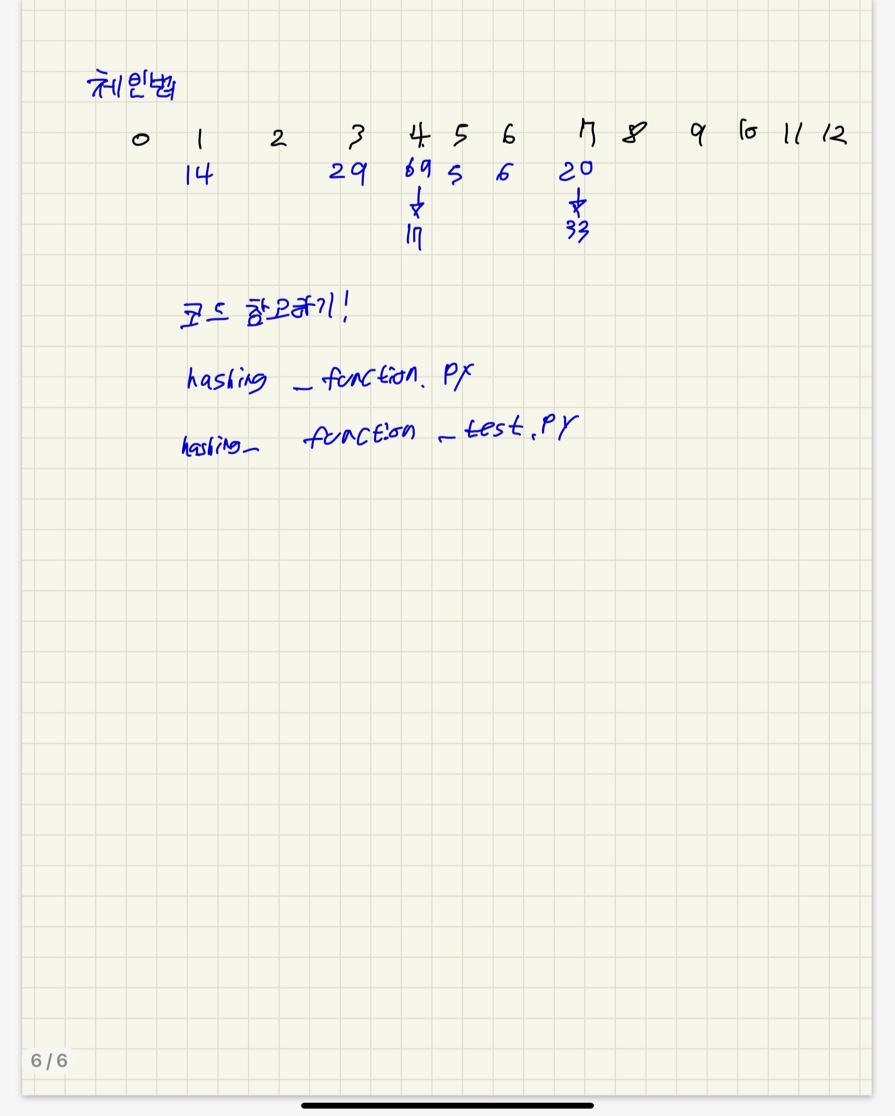 체인법
0 1 2 3 4 5 6 7 8 9 10 11 12
14 29 69 5 6 20
17 33
코드 참고하기!
hashing _ function. py
hashing_ function _ test.py
6 / 6